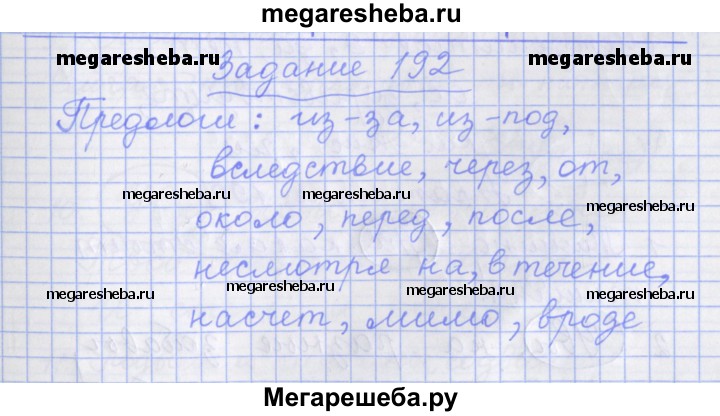 megaresheba.ru
megaresheba.ru
megaresheba.ru
Задание 192
Предлоги: из-за, из-под,
вследствие, через, от,
megaresheba.ru
megaresheba.ru
megaresheba.ru
около, перед, после,
несмотря на, в течение,
megaresheba.ru
megaresheba.ru
megaresheba.ru
насчет, мимо, вроде
Мегарешеба.ру